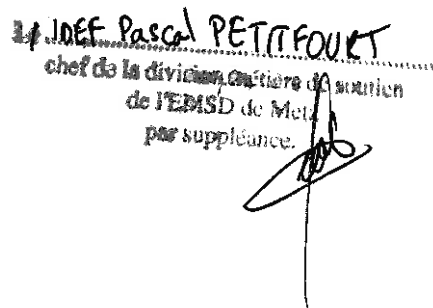 IDEF Pascal PETITFOURT
chef de la division métiers de soutien
de l'EMSD de Metz
par suppléance.